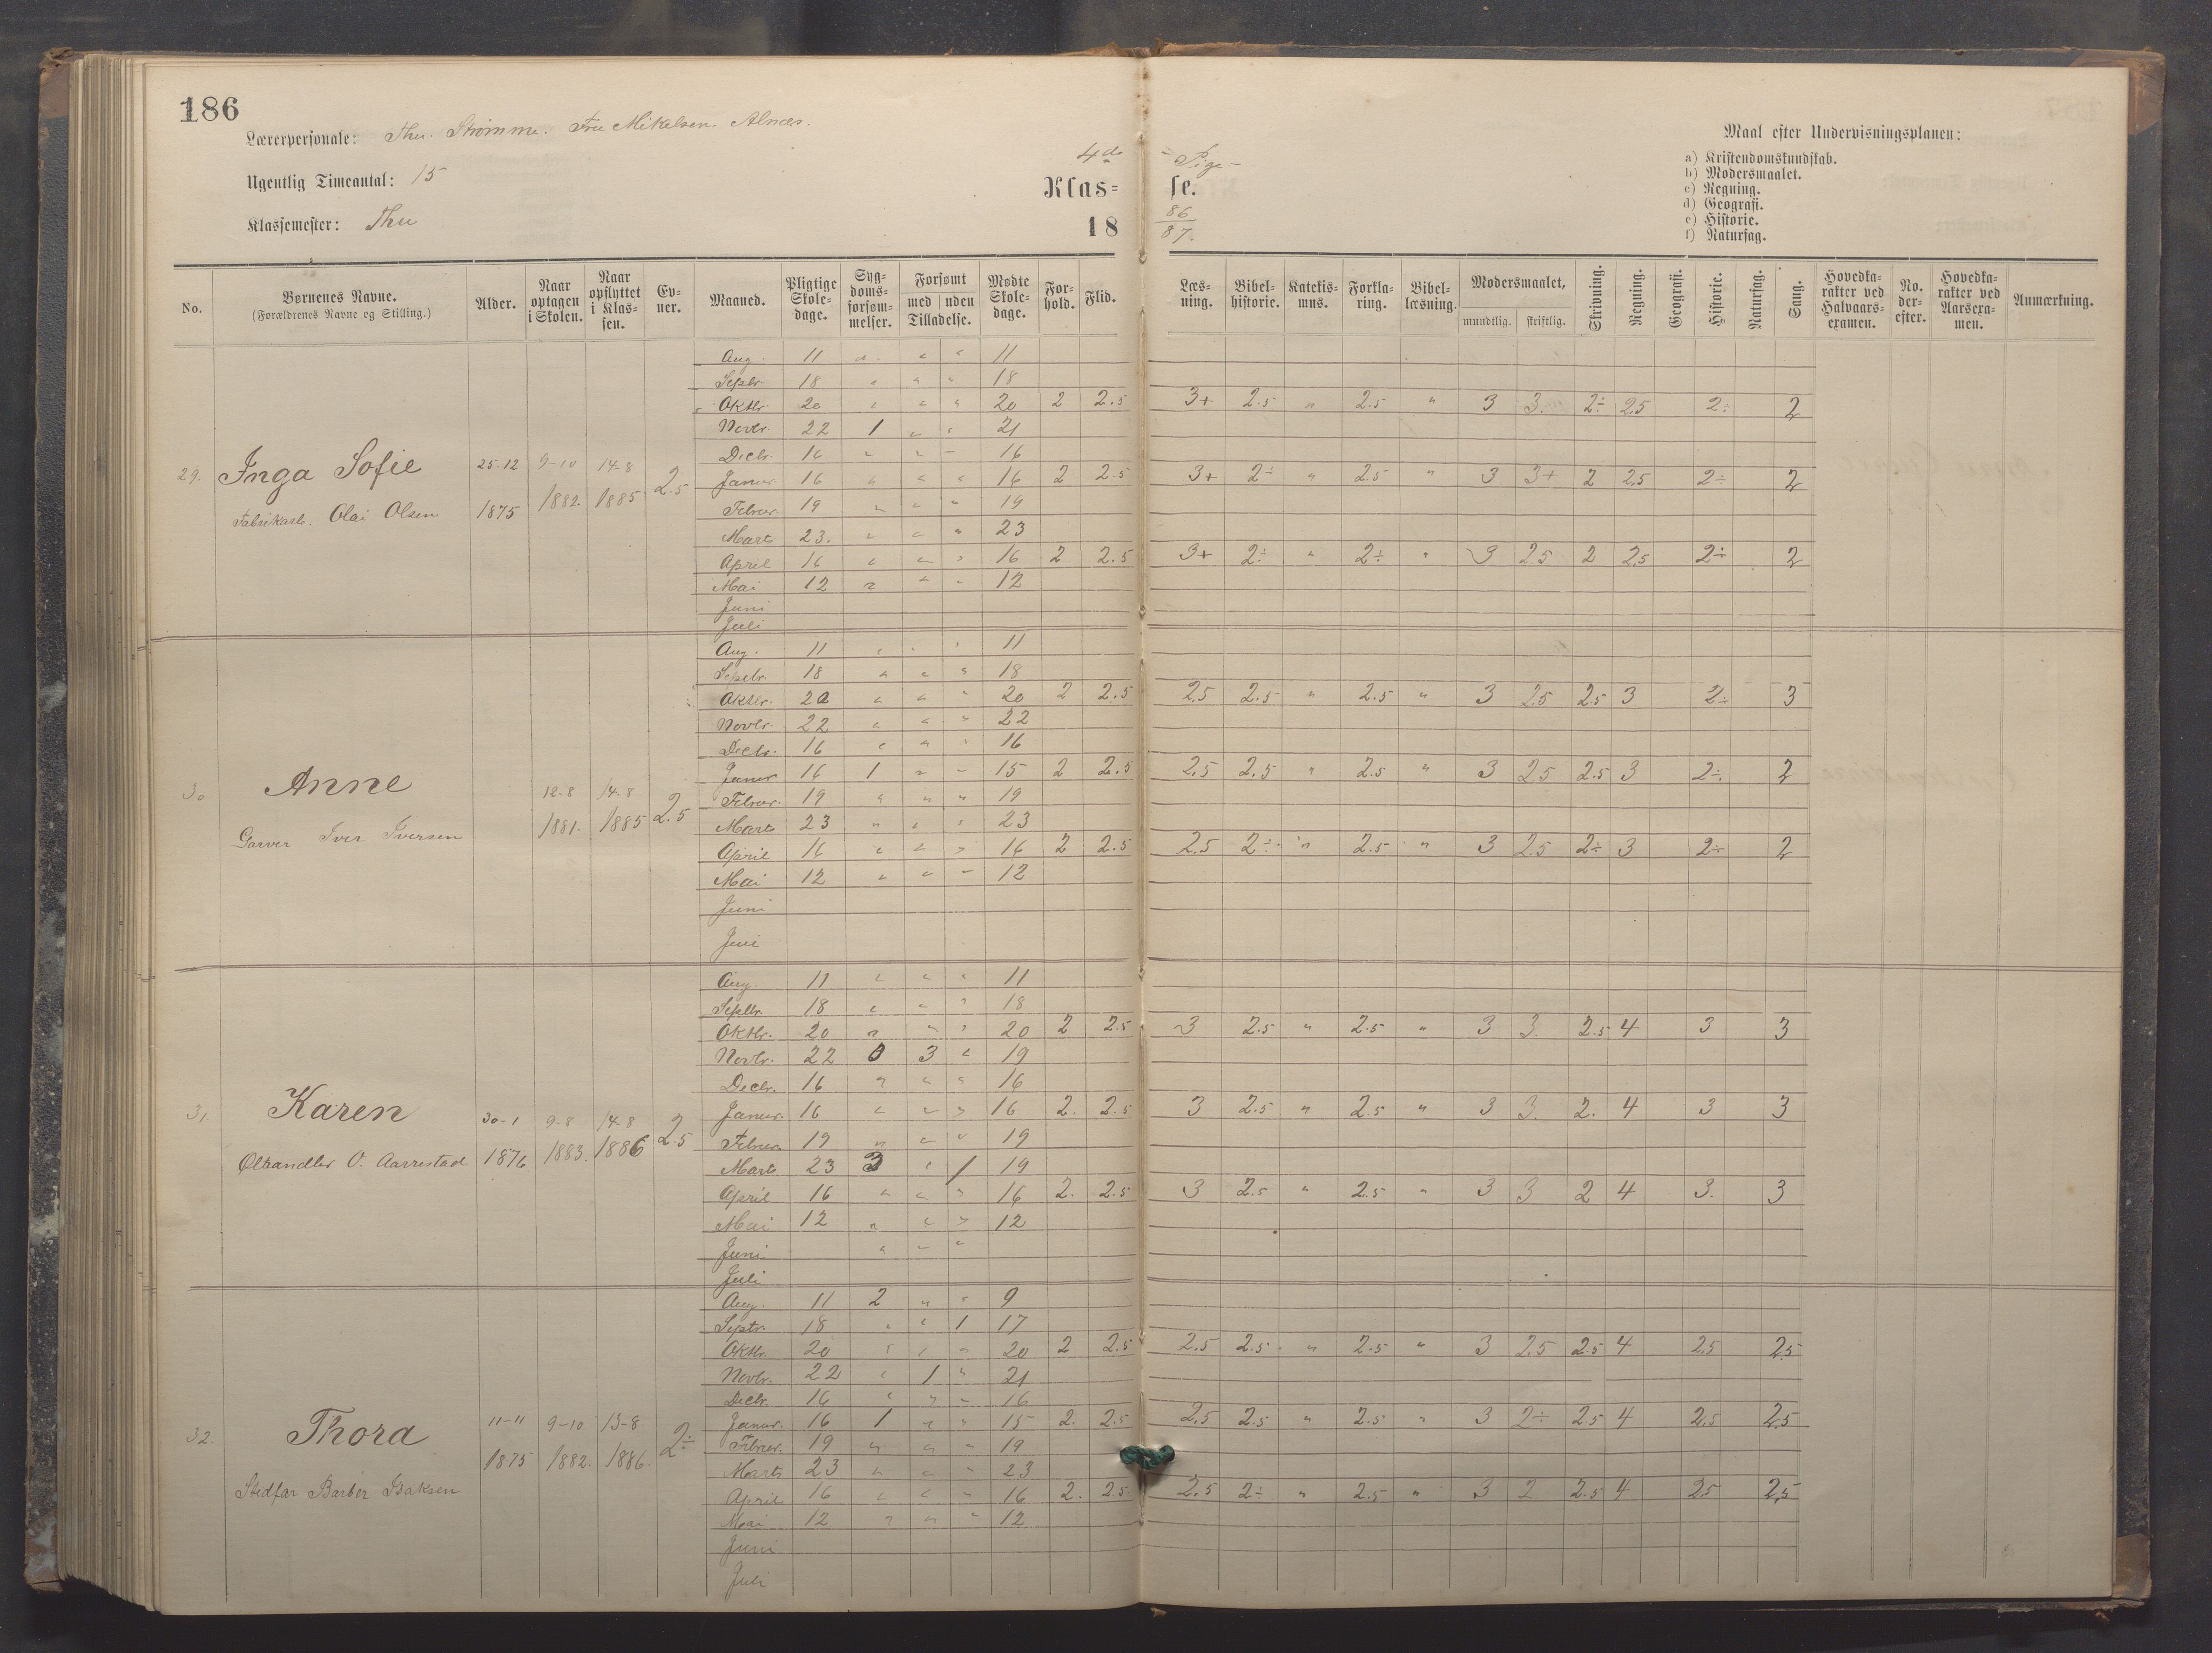 186
Lærerpersonale: Thu. Strømme. Fru Mikelsen. Alnæs.
Ugentlig Timeantal: 15
Klassemester: Thu
4de - Pige-
Klas= se.
18 86/87.
Maal efter Undervisningsplanen:
a) Kristendomskundskab.
b) Modersmaalet.
c) Regning.
d) Geografi.
e) Historie.
f) Naturfag.
No. Børnenes Navne. (Forældrenes Navne og Stilling.) Alder. Naar optagen i Skolen. Naar opflyttet i Klas-sen. Ev-ner. Maaned. Pligtige Skole-dage. Syg-doms-forsøm-melser. Forsømt med uden Tilladelse. Mødte Skole-dage. For-hold. Flid. Læs-ning. Bibel-historie. Katekis-mus. Forkla-ring. Bibel-læsning. Modersmaalet, mundtlig. skriftlig. Skrivning. Regning. Geografi. Historie. Naturfag. Sang. Hovedka-rakter ved Halvaars-examen. No. der-efter. Hovedka-rakter ved Aarsexa-men. Anmærkning.
29. Inga Sofie
Fabrikarb. Olai Olsen
25-12 1875 9-10 1882. 14-8 1885. 2.5
Aug. 11 " " " 11
Septbr. 18 " " " 18
Oktbr. 20 " " " 20 2 2.5 3+ 2.5 " 2.5 " 3 3. 2÷ 2.5 2÷ 2
Novbr. 22 1 " " 21
Decbr. 16 " " " 16
Januar. 16 " " " 16 2 2.5 3+ 2÷ " 2.5 " 3 3+ 2 2.5 2÷ 2
Februar. 19 " " " 19
Marts 23. " " " 23
April 16 " " " 16 2 2.5 3+ 2÷ " 2÷ " 3 2.5 2 2.5 2÷ 2
Mai 12 " " " 12
Juni
Juli
30 Anne
Garver Iver Iversen
12-8 1881. 14-8 1885 2.5
Aug. 11 " " " 11
Septbr. 18 " " " 18
Oktbr. 20 " " " 20 2 2.5 2.5 2.5 " 2.5 " 3 2.5 2.5 3 2÷ 3
Novbr. 22 " " " 22
Decbr. 16 " " " 16
Januar 16 1 " " 15 2 2.5 2.5 2.5 " 2.5 " 3 2.5 2.5 3 2÷. 2
Februar. 19 " " " 19
Marts 23 " " " 23
April 16 " " " 16 2 2.5 2.5 2÷ " 2.5 " 3 2.5 2÷ 3 2÷ 2
Mai 12 " " " 12
Juni
Juli
31. Karen
Ølhandler O. Aarrestad
30-1 1876. 9-8 1883. 14-8 1886 2.5
Aug. 11 " " " 11
Septbr. 18 " " " 18
Oktbr. 20 " " " 20 2 2.5 3 2.5 " 2.5 " 3 3. 2.5 4 3 3
Novbr. 22 0 3 " 19
Decbr. 16 " " " 16
Januar. 16 " " " 16 2. 2.5 3 2.5 " 2.5 " 3 3. 2. 4 3 3
Februar. 19 " " " 19
Marts 23 3 " 1 19
April 16 " " " 16 2. 2.5 3 2.5 " 2.5 " 3 3 2 4 3. 3
Mai 12 " " " 12
Juni " " "
Juli
32. Thora
Stedfar Barber Isaksen
11-11 1875 9-10 1882. 13-8 1886. 2÷
Aug. 11 2 " " 9
Septr. 18 " " 1 17
Oktbr. 20 " " " 20 2 2.5 2.5 2.5 " 2.5 " 3 2.5 2.5 4 2.5 2.5
Novbr. 22 " 1 " 21
Decbr. 16 " " " 16
Januar. 16 1 " " 15 2. 2.5 2.5 2.5 " 2.5 " 3 2÷ 2.5 4 2.5 2.5
Februar. 19 " " " 19
Marts 23 " " " 23
April 16 " " " 16 2. 2.5 2.5 2÷ " 2.5 " 3 2 2.5 4 2.5 2.5
Mai 12 " " " 12
Juni
Juli